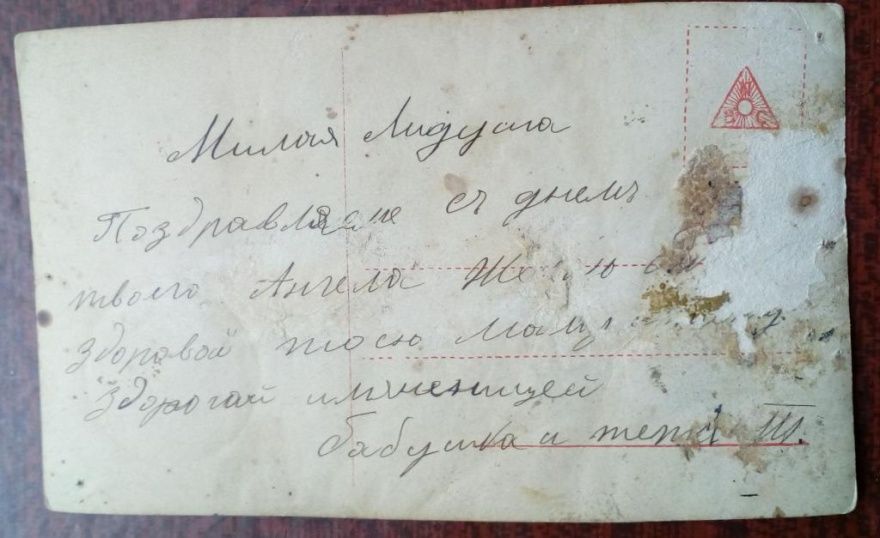 Милая Лидуша
Поздравляеме съ днемъ
твоего Ангела
здоровой твою маму
здорогай имененицей
бабушка и тетя Ш.